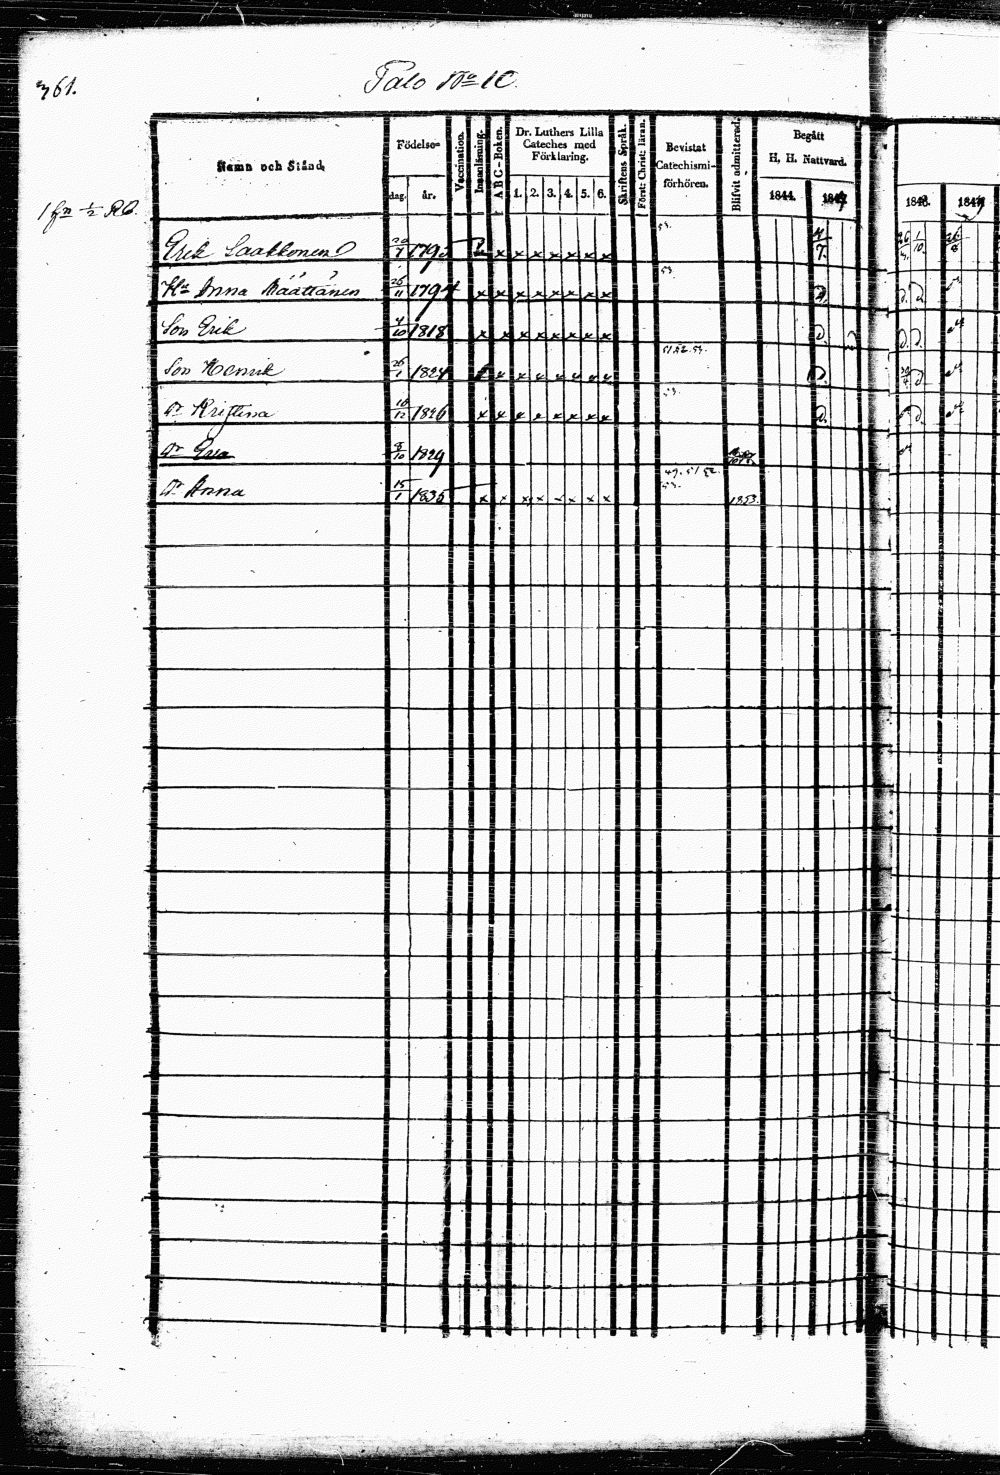 361.
Talo No 10.
Namn och Stånd
Födelse=
dag. år.
Vaccination.
Innanläsning.
ABC-Boken.
Dr. Luthers Lilla
Cateches med
Förklaring.
1. 2. 3. 4. 5. 6.
Skriftens Språk.
Först: Christ: läran.
Bevistat
Catechismi-
förhören.
Blifvit admitterad.
Begått
H. H. Nattvard.
1844. 1847
1848. 1849
Erik Laakkonen 20/7 1795 x x x x x x x 53. 4/7.
Hu Anna Määttänen 26/11 1794 x x x x x x x x 53.
Son Erik 4/10 1818 x x x x x x x x
Son Henrik 26/1 1824 x x x x x x x 51.52.53.
Dr Kristina 16/12 1826 x x x x x x x x 53.
Dr Eva 8/10 1829
Dr Anna 15/1 1835 x x x x x x x x 49. 51/52. 53. 1853.